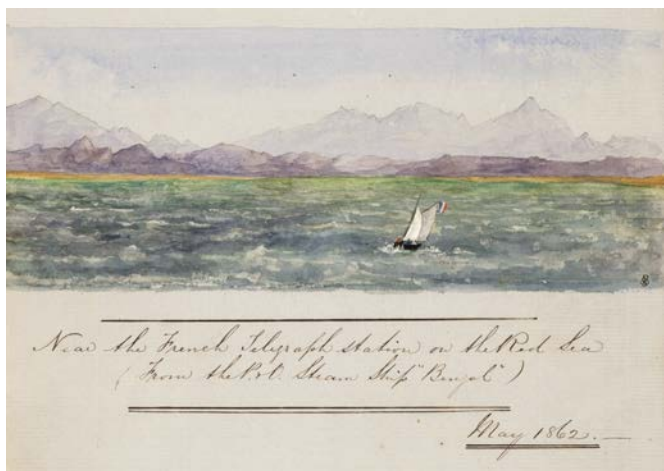 Near the French Telegraph station on the Red Sea
(From the P&O. Steam Ship "Bengal")
May 1862.—